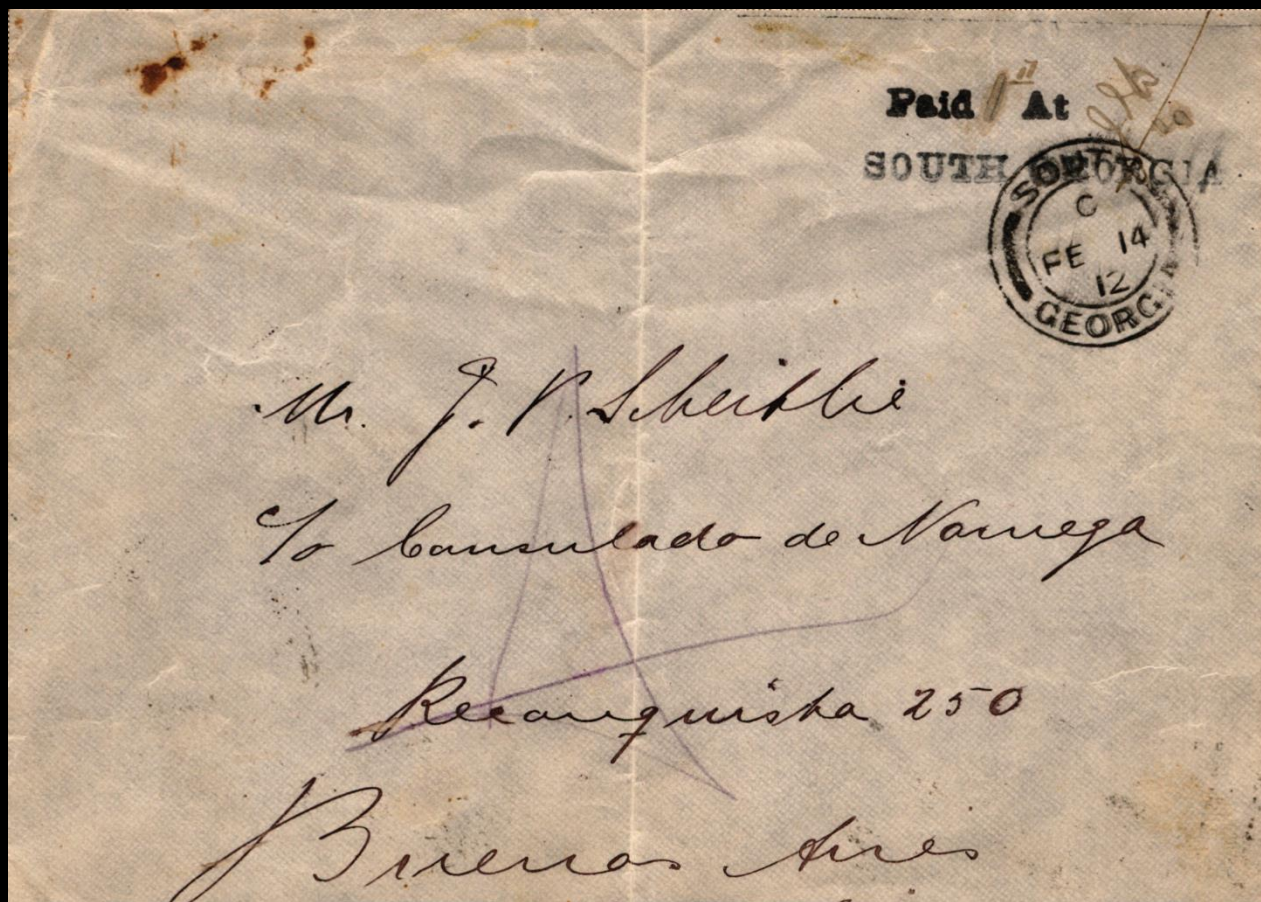 Paid 1d At
SOUTH GEORGIA
SOUTH
C
FE 14
12
GEORGIA
Mr. J. P. Scheitlie
c/o Consulado de Noruega
Reconquista 250
Buenos Aires